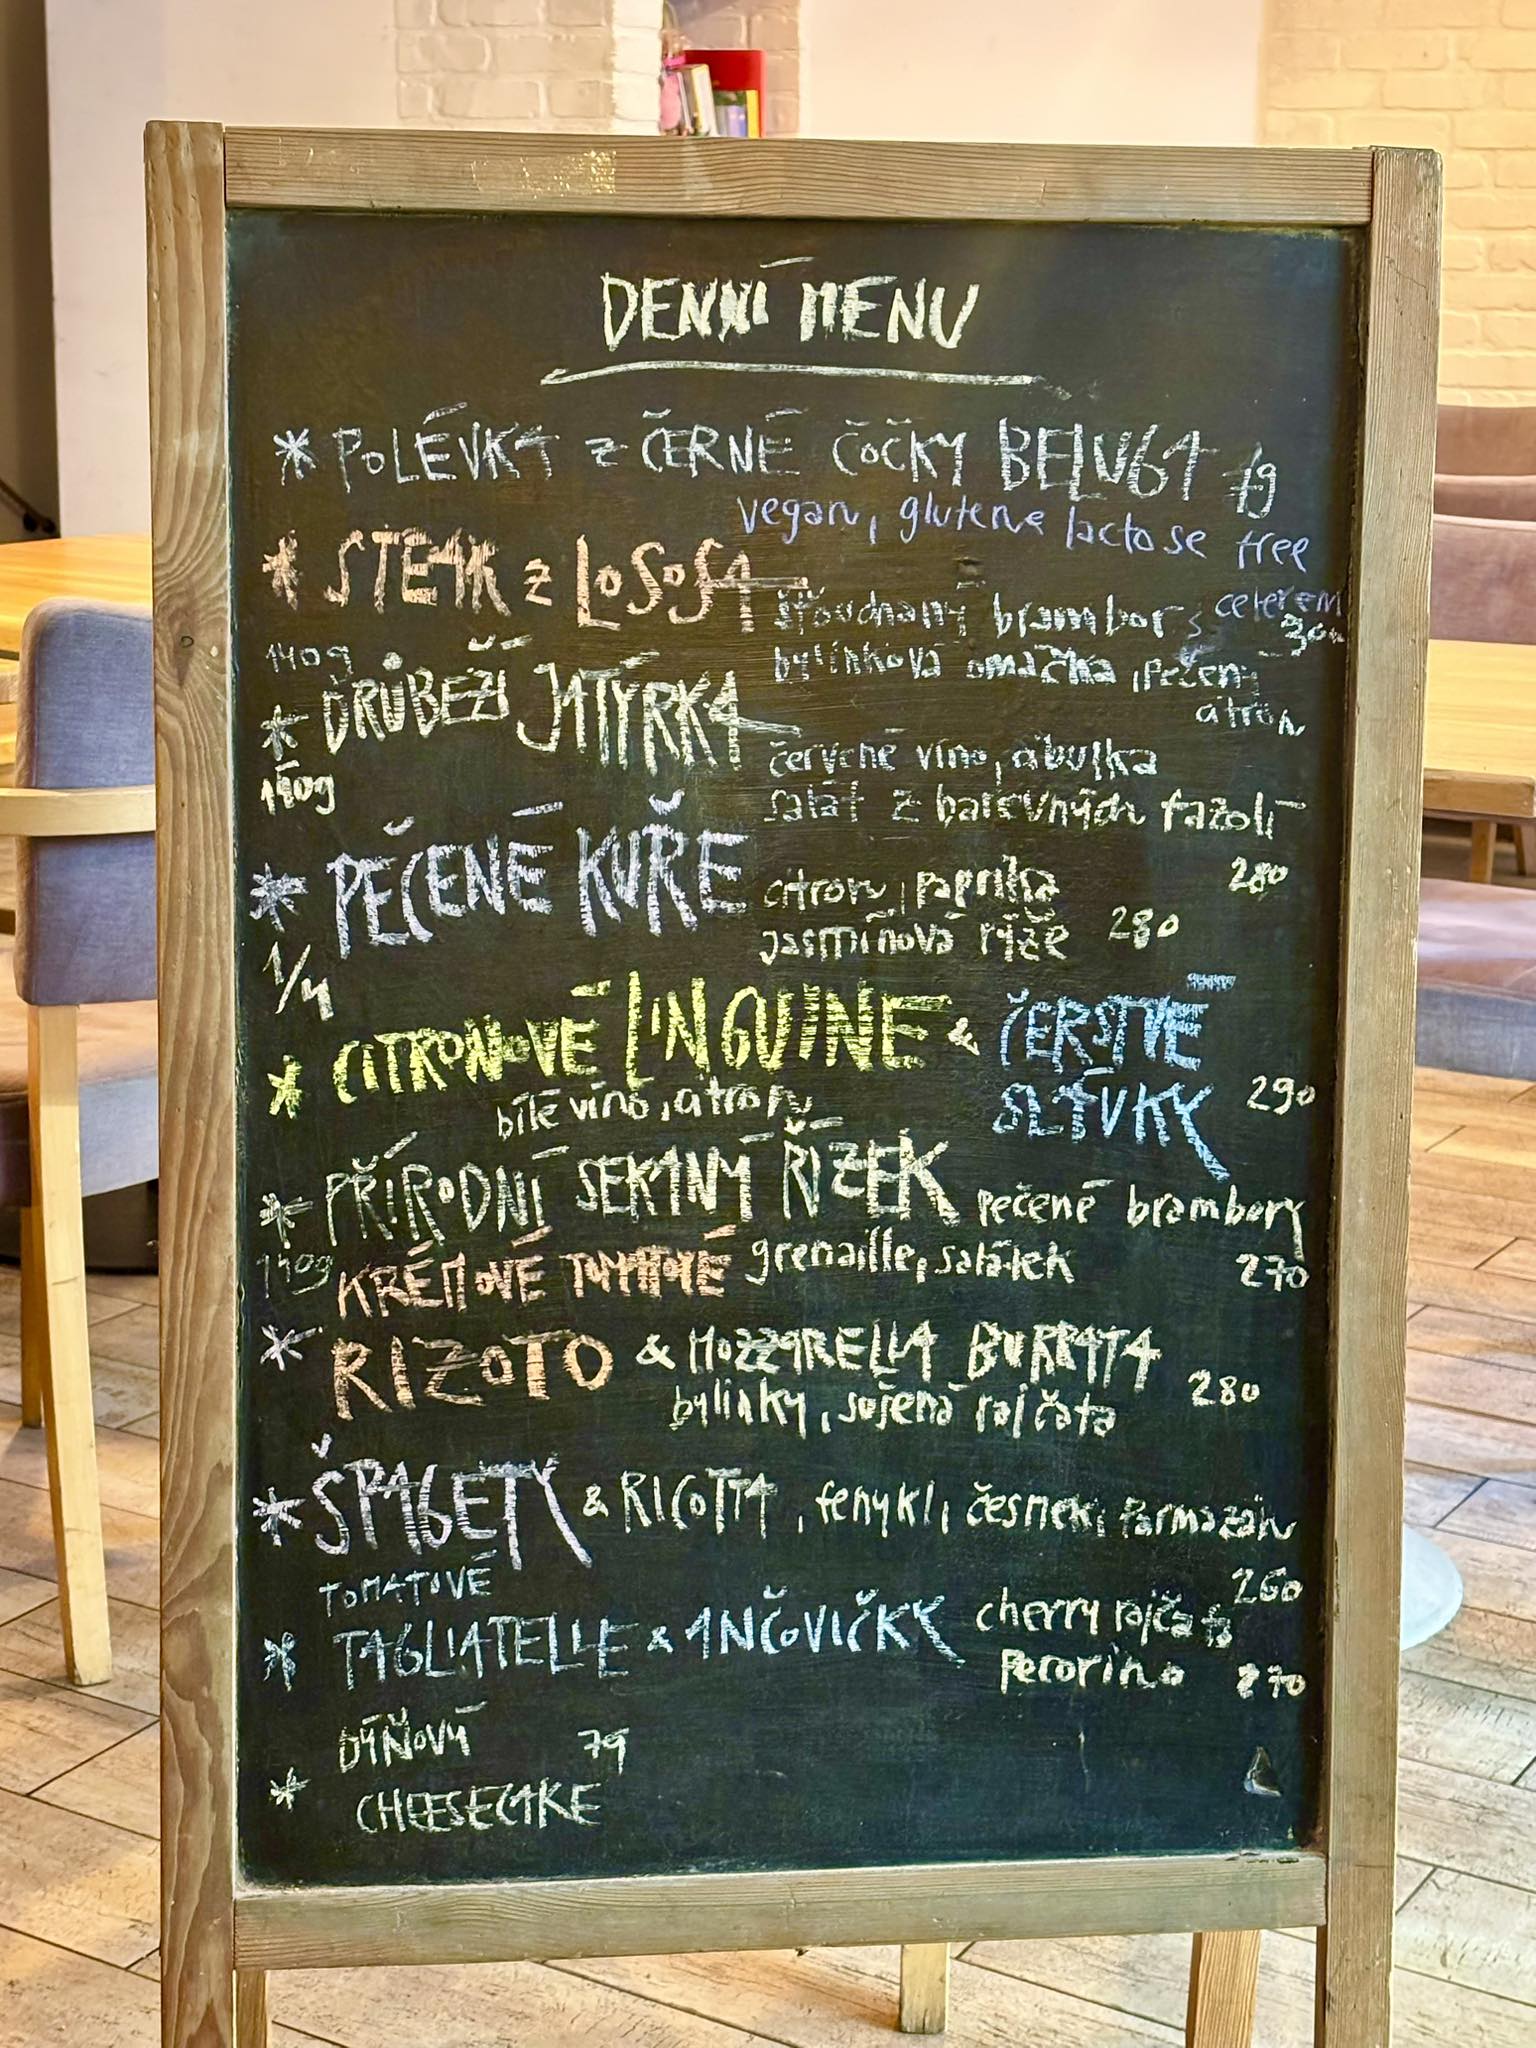 DENNÍ MENU
* POLÉVKA z ČERNÉ ČOČKY BELUGA 79
vegan, glutene lactose free
* STEAK z LOSOSA
šťouchaný brambor s celerem 300
140g
bylinková omáčka, pečený
citron
* DRŮBEŽÍ JÁTÝRKA
červené víno, cibulka
140g
salát z barevných fazolí
280
* PEČENÉ KUŘE
citron, paprika
jasmínová rýže 280
1/4
* CITRONOVÉ LINGUINE & ČERSTVÉ
SLÁVKY 290
bílé víno, citron
* PŘÍRODNÍ SEKANÝ ŘÍZEK pečené brambory
140g
grenaille, salátek 270
KRÉMOVÉ TOMATOVÉ
* RIZOTO & MOZZARELLA BURRATA
280
bylinky, sušená rajčata
* ŠPAGETY & RICOTTA, fenykl, česnek, Parmazán
260
TOMATOVÉ
* TAGLIATELLE & ANČOVIČKY cherry rajčata
Pecorino 270
DÝŇOVÝ 79
* CHEESECAKE